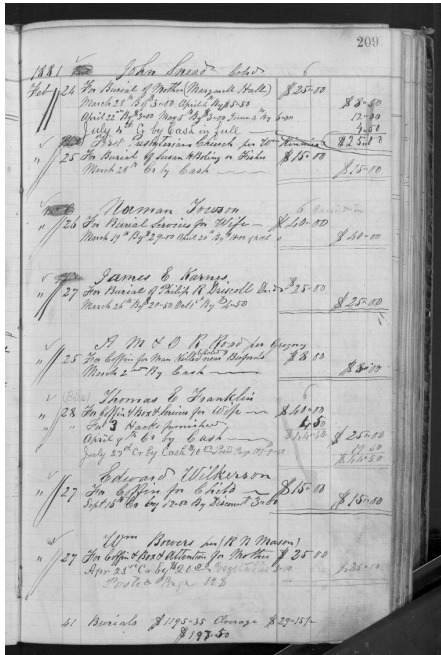 209
1881 John Snead Cold 6
Feb 24 For Burial of Mother (Margarett Hall) $25-00
March 28th By $3-00 April 4th By $5-50 $8-50
April 22nd By $3-00 May 5th By $3-00 June 4th By 6-00 12-00
July 4th Cr by Cash in full 4-50
First Presbyterian Church per Wm $25.00
" 25 For Burial of Susan H Boling or Fisher $15-00
March 28th Cr by Cash $15-00
Norman Towson 6
" 26 For Burial Services for Wife $40-00
March 19th By 29-00 April 20th By $40-00
James E Karnes
" 27 For Burial of Philip R Driscoll $25-00
March 26th By 20-50 By 4-50 $25-00
A M & O R Road per Gregory
" 25 For Coffin for Man Killed near Bufords $8 00
March 2nd By Cash $8-00
Thomas E Franklin 6
" 28 For Coffin & Box & Services for Wife $40-00
" For 3 Hacks furnished 4.50
April 9th Cr by Cash $44-50 $25-00
July 23rd Cr By Cash $10
$44-50
Edward Wilkerson
" 27 For Coffin for Child $15-00
Sept 15th Cr by 12-00 By Discount 3-00 $15-00
Wm Bowers per (R N Mason)
" 27 For Coffin & Box & Attention for Mother $25 00
Apr 25th Cr By
Posted Page 128
41 Burials $1195-35 Average $29-15
$197.50